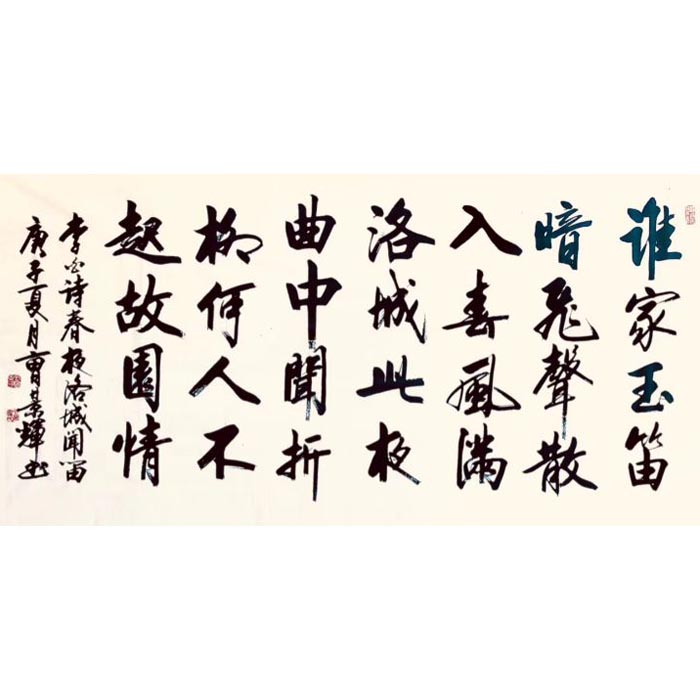 谁家玉笛
暗飛聲散
入春風滿
洛城此夜
曲中聞折
柳何人不
起故園情
李白诗春夜洛城闻笛
庚子夏月曹景輝书